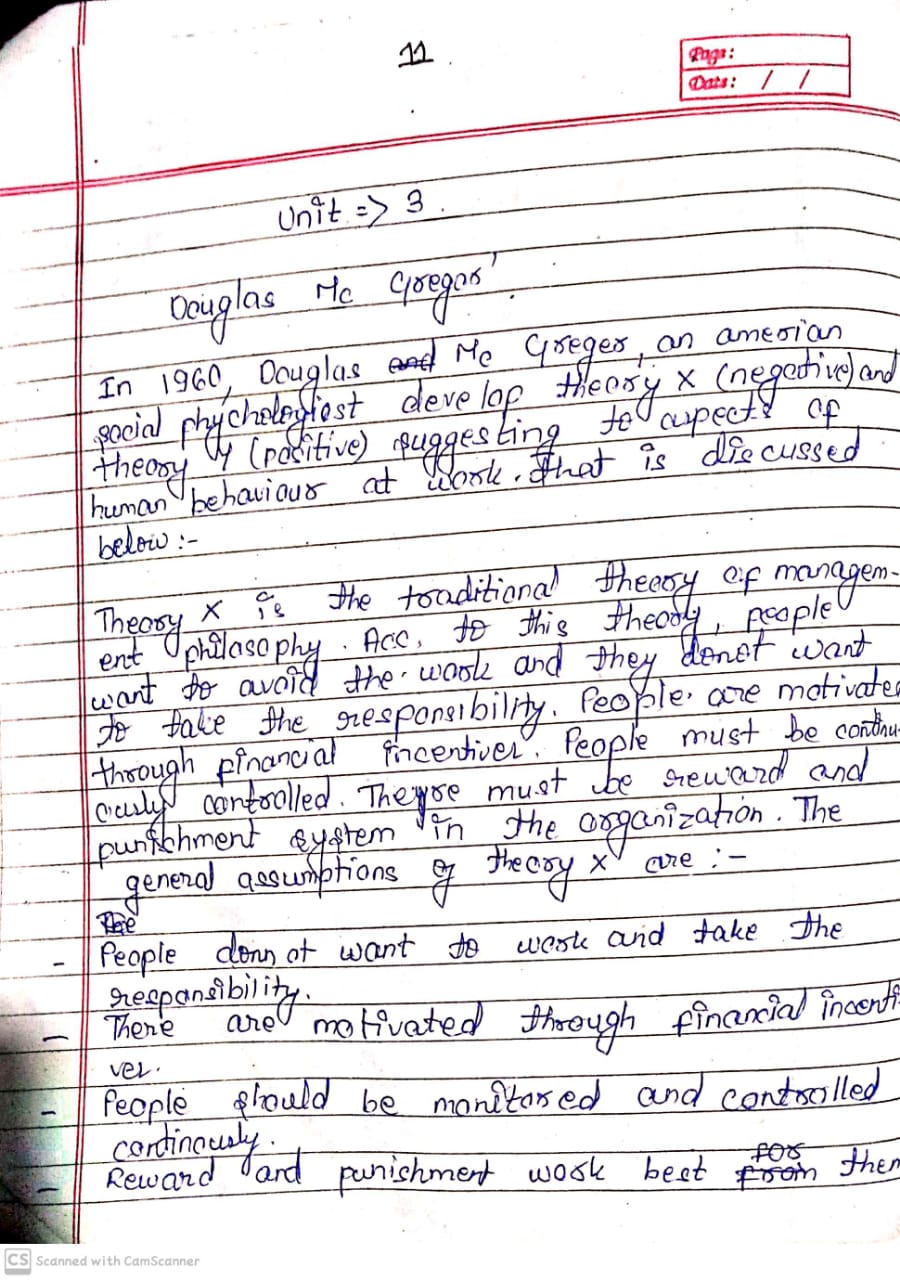 11
Page:
Date: / /
Unit => 3
Douglas Mc Gregor
In 1960, Douglas and Mc Greger, an amerian
social phychologiost develop theory X (negative) and
theory Y (positive) suggesting to aspects of
human behaviour at work. that is discussed
below :-
Theory X is the traditional theory of managem-
ent philosophy. Acc. to this theory, people
want to avoid the work and they donot want
to take the responsibility. People are motivated
through financial incentives. People must be continu-
ously controlled. Theyre must be reward and
punishment system in the organization. The
general assumptions of theory X are :-
The
- People donnot want to work and take the
responsibility.
- There are motivated through financial incenti
ves.
- People should be monitored and controlled
continously.
- Reward and punishment work best from for them
CS Scanned with CamScanner